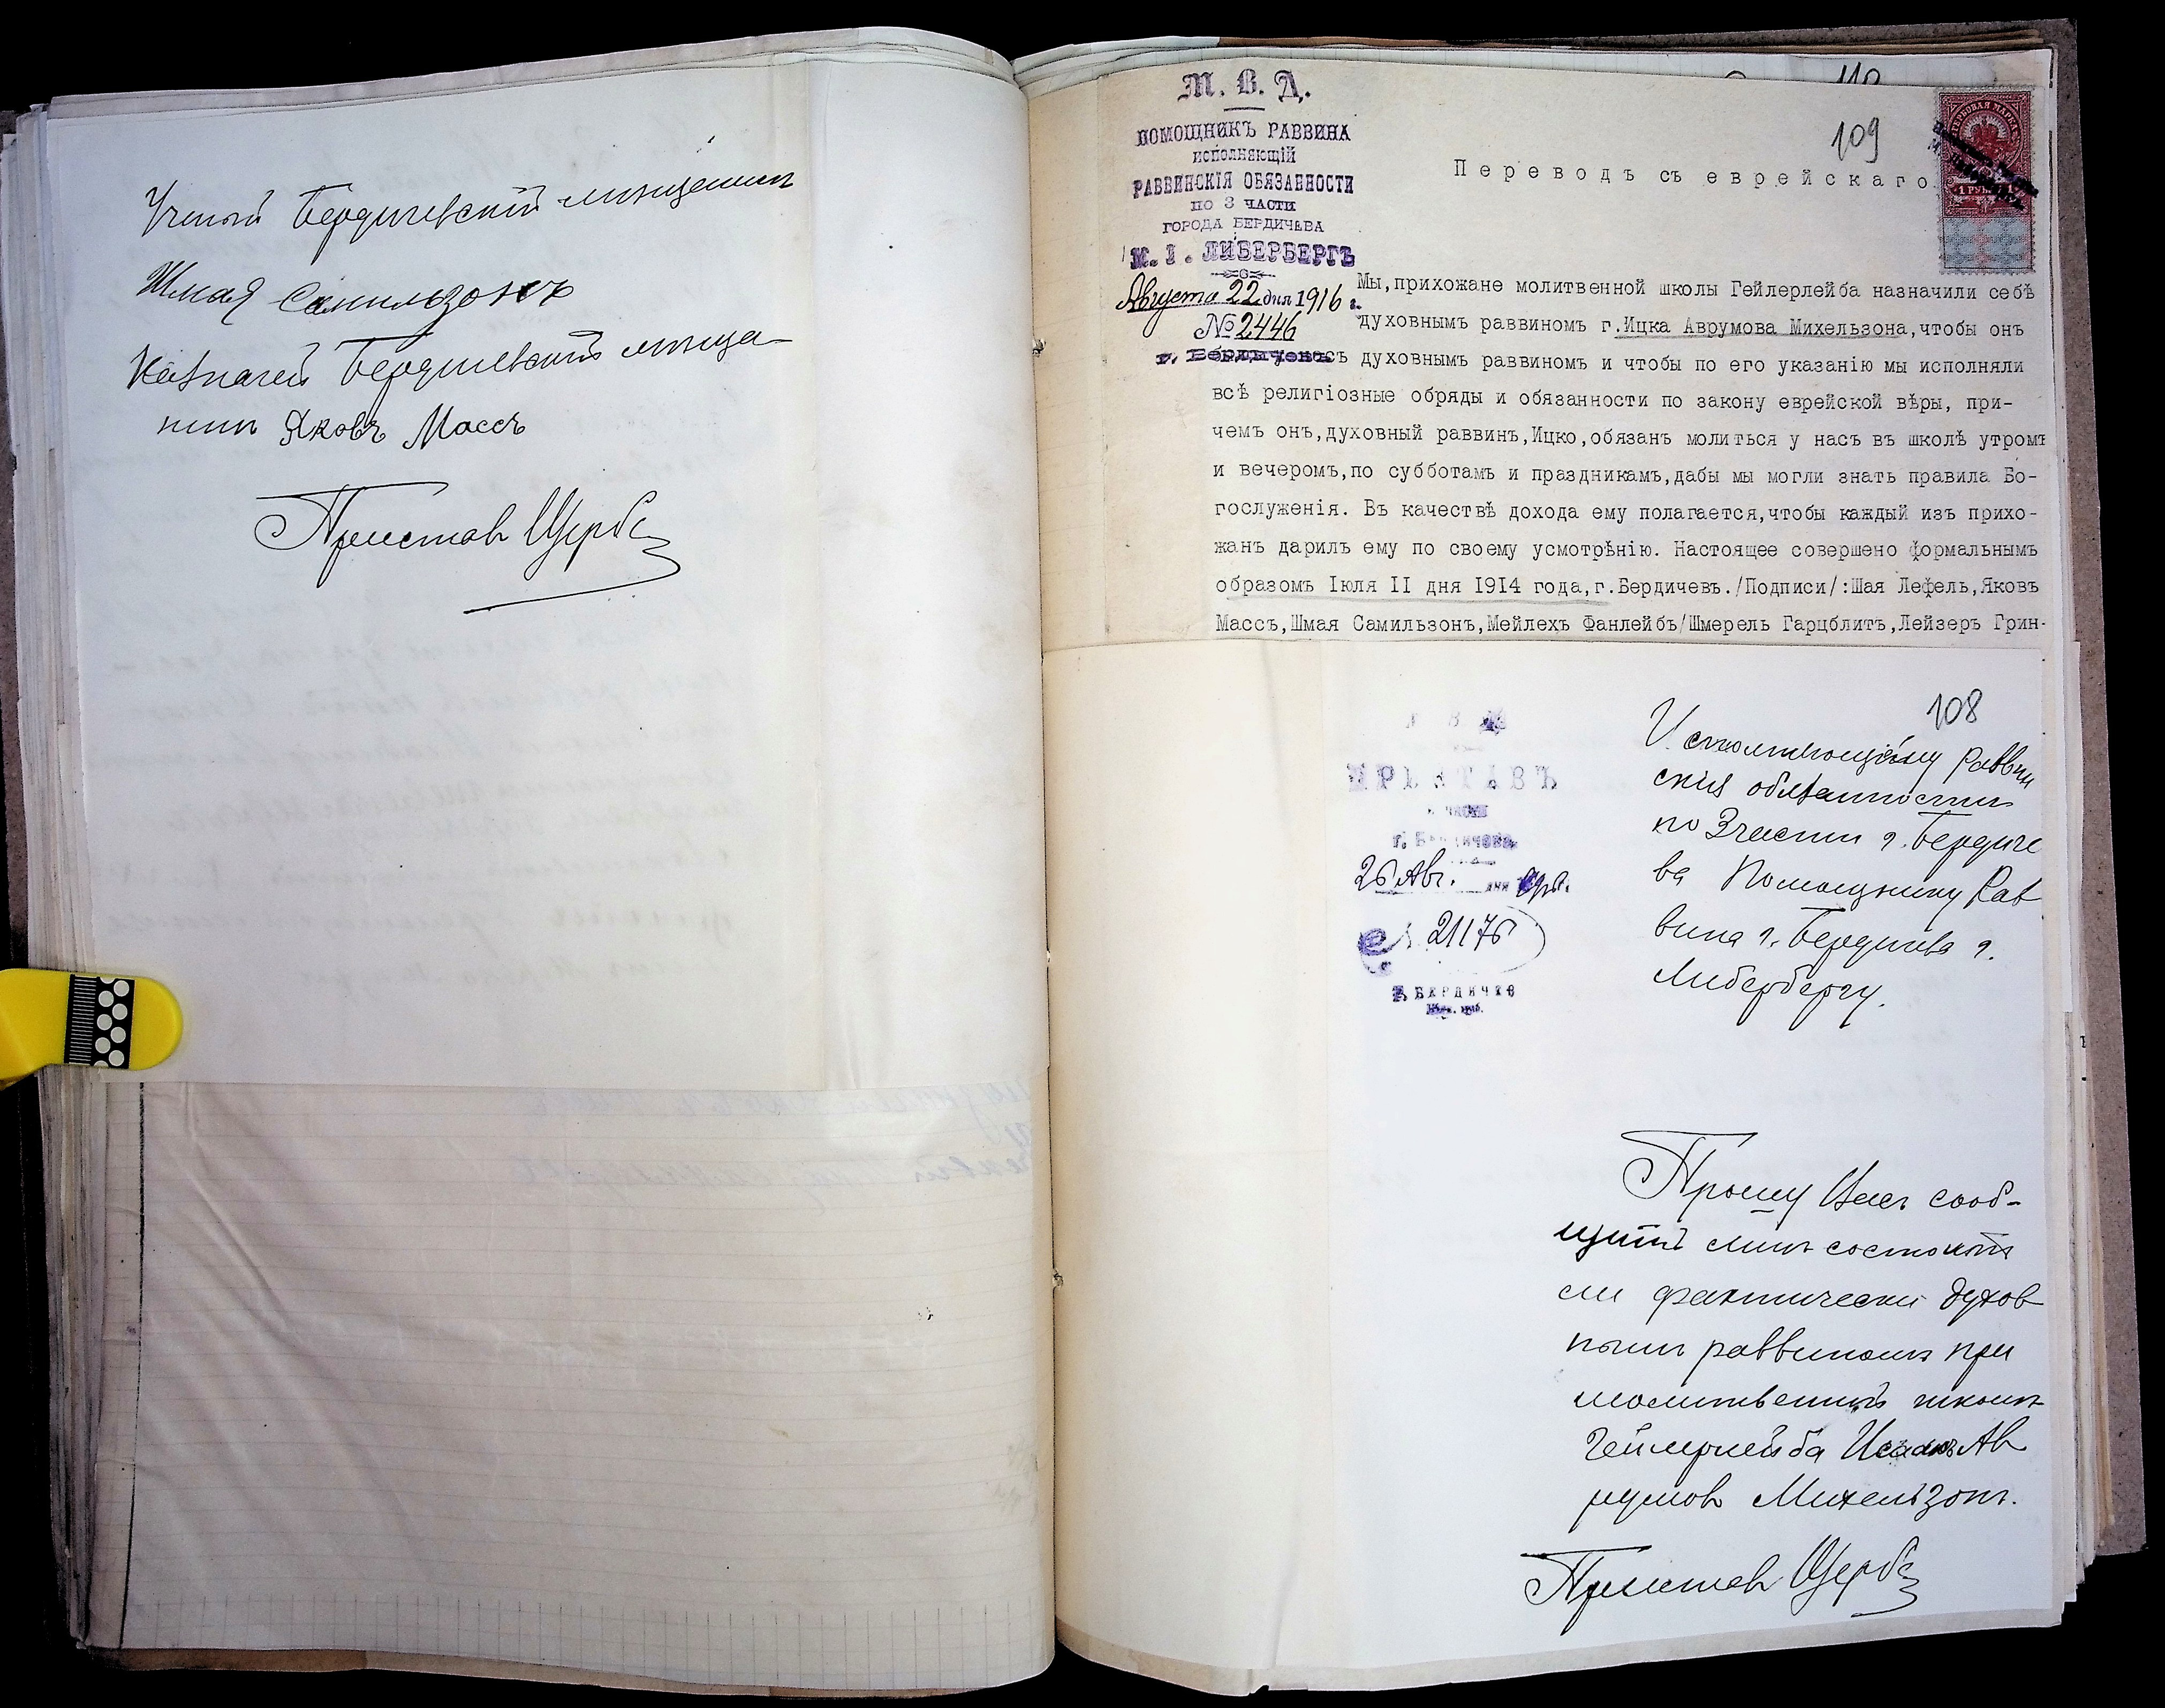 Ученый Бердичевскій мѣщанинъ
Шмая Самильзонъ
Казначей Бердичевскій мѣща-
нинъ Яковъ Массъ
Приставъ Щерба
110
М. В. Д.
ПОМОЩНИКЪ РАВВИНА
ИСПОЛНЯЮЩІЙ
РАВВИНСКІЯ ОБЯЗАННОСТИ
ПО 3 ЧАСТИ
ГОРОДА БЕРДИЧЕВА
М. І. ЛИБЕРБЕРГЪ
Августа 22 дня 1916 г.
№ 2446
г. Бердичевъ
109
Переводъ съ еврейскаго
1 РУБ. 1
Мы,прихожане молитвенной школы Гейлерлейба назначили себѣ
духовнымъ раввиномъ г.Ицка Аврумова Михельзона,чтобы онъ
съ духовнымъ раввиномъ и чтобы по его указанію мы исполняли
всѣ религіозные обряды и обязанности по закону еврейской вѣры, при-
чемъ онъ,духовный раввинъ,Ицко,обязанъ молиться у насъ въ школѣ утромъ
и вечеромъ,по субботамъ и праздникамъ,дабы мы могли знать правила Бо-
гослуженія. Въ качествѣ дохода ему полагается,чтобы каждый изъ прихо-
жанъ дарилъ ему по своему усмотрѣнію. Настоящее совершено формальнымъ
образомъ Іюля II дня 1914 года,г.Бердичевъ./Подписи/:Шая Лефель,Яковъ
Массъ,Шмая Самильзонъ,Мейлехъ Фанлейбъ/Шмерель Гарцблитъ,Лейзеръ Грин-
108
ПРИСТАВЪ
части
г. Бердичева
26 Авг. дня
21176
Г. БЕРДИЧЕВ
Исполняющему Равви
нскія обязанности
по 3 части г. Бердиче
ва Помощнику Рав
вина г. Бердичева г.
Либербергу.
Прошу Васъ сооб-
щить мнѣ состоитъ
ли фактически духов
нымъ раввиномъ при
молитвенной школѣ
Гейлерлейба Ицко Ав
румовъ Михельзонъ.
Приставъ Щерба